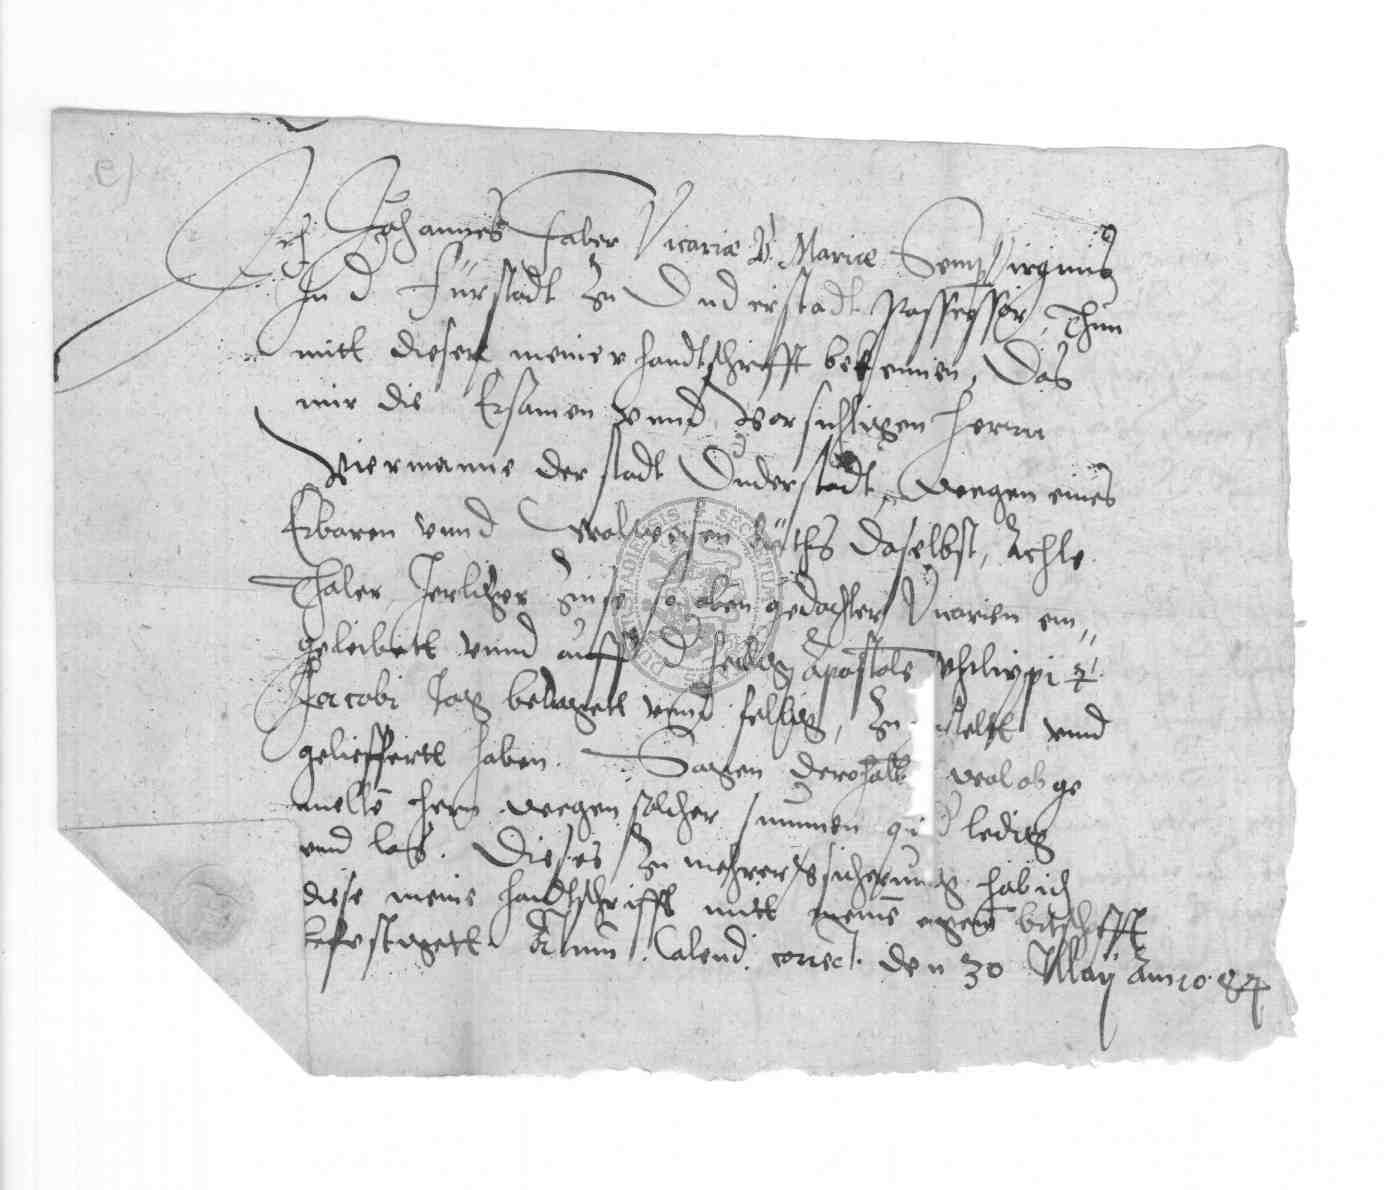 e)
Ich Johannes Faber Vicariæ B. Mariæ Semp Virginis
In d Fürstadt Zu Duderstadt Possessor, Thun
mitt dieser meiner handtschrifft bekennen, Das
mir die Ersamen vnnd Vorsichtigen Herrn
Viermanne der stadt Duderstadt, wegen eines
Erbaren vnnd Wolweisen Raths daselbst, Achte
Thaler Jerlicher Zinse so oben gedachter Vicarien ein„
geleibett vnnd auff d heilig Apostole Philippi et
Jacobi Tag betagett vnnd fellig, Zu stelt vnnd
gelieffertt haben. Sagen derohalb wol ob ge
melte Hern wegen solcher summen qui ledig
vnd loß. Dieses Zu mehrer Vsicherung hab ich
diese meine handtschrifft mitt meine eigene bitschafft
befestigett. Actum Calend. correct. den 30 Maij Anno 84